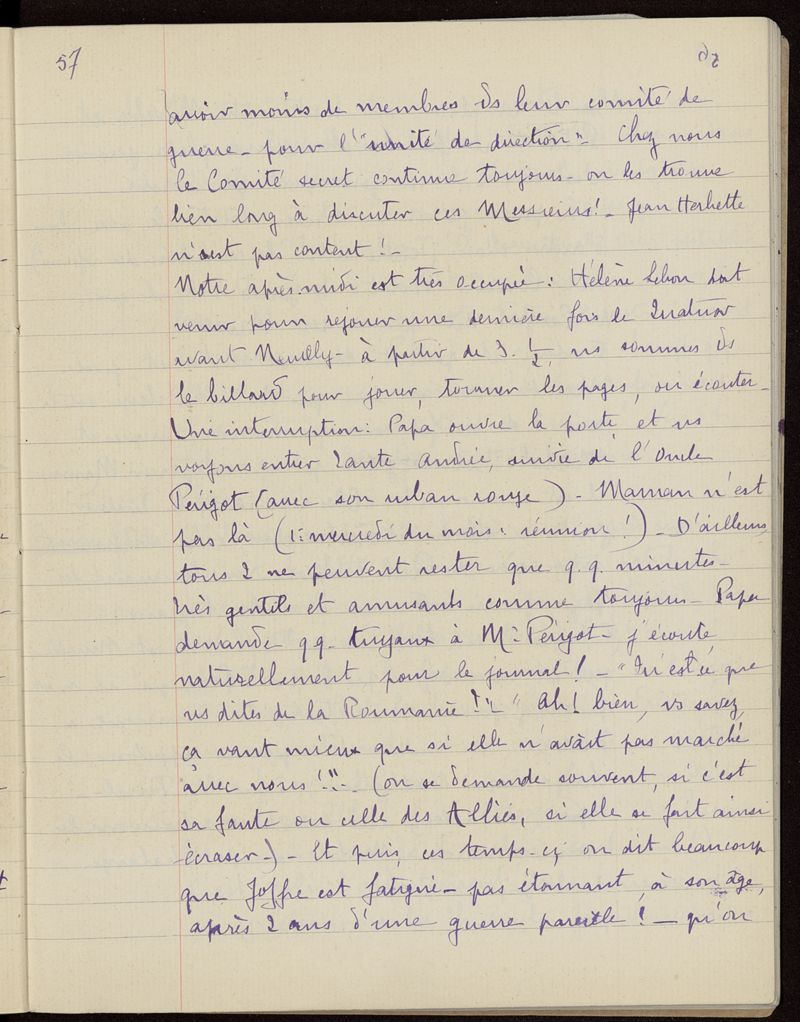 57
avoir moins de membres ds leur comité de
guerre - pour l'"unité de direction" - Chez nous
le Comité secret continue toujours - on les trouve
bien long à discuter ces Messieurs! - Jean Herbette
n'est pas content! -
Notre après-midi est très occupée : Hélène Lebon doit
venir pour rejouer une dernière fois le Quatuor
avant Neuilly - à partir de 3. 1/2, ns sommes ds
le billard pour jouer, tourner les pages, ou écouter -
Une interruption : Papa ouvre la porte et ns
voyons entrer Tante Andrée, suivie de l'Oncle
Périgot (avec son ruban rouge) - Maman n'est
pas là (1er mercredi du mois : réunion!) - D'ailleurs
tous 2 ne peuvent rester que q.q. minutes -
très gentils et amusants comme toujours - Papa
demande qq. tuyaux à Mr Périgot - j'écoute
naturellement pour le journal! - "Qu'est ce que
vs dites de la Roumanie?" - "Ah! bien, vs savez,
ça vaut mieux que si elle n'avait pas marché
avec nous!" - (on se demande souvent, si c'est
sa faute ou celle des Alliés, si elle se fait ainsi
écraser -) - Et puis, ces temps-ci, on dit beaucoup
que Joffre est fatigué - pas étonnant, à son âge,
après 2 ans d'une guerre pareille! - qu'on